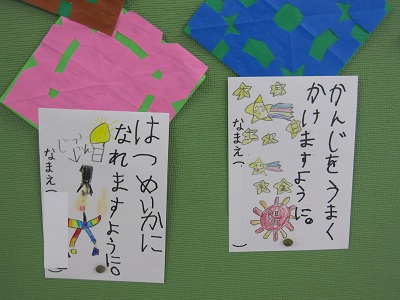 かんじをうまく
かけますように。
なまえ( )
はつめいかに
なれますように。
なまえ( )